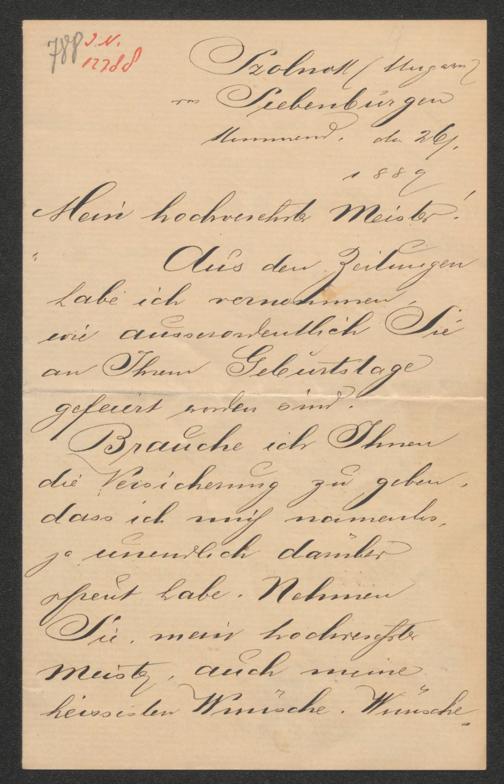 788 I.N.
12788
Szolnok (Ungarn)
Siebenbürgen
den 26/
1889
Mein hochverehrter Meister!
Aus den Zeitungen
habe ich vernommen,
wie ausserordentlich Sie
an Ihrem Geburtstage
gefeiert worden sind.
Brauche ich Ihnen
die Versicherung zu geben,
dass ich mich namenlos,
ja unendlich darüber
gefreut habe. Nehmen
Sie, mein hochverehrter
Meister, auch meine
heissesten Wünsche. Wünsche